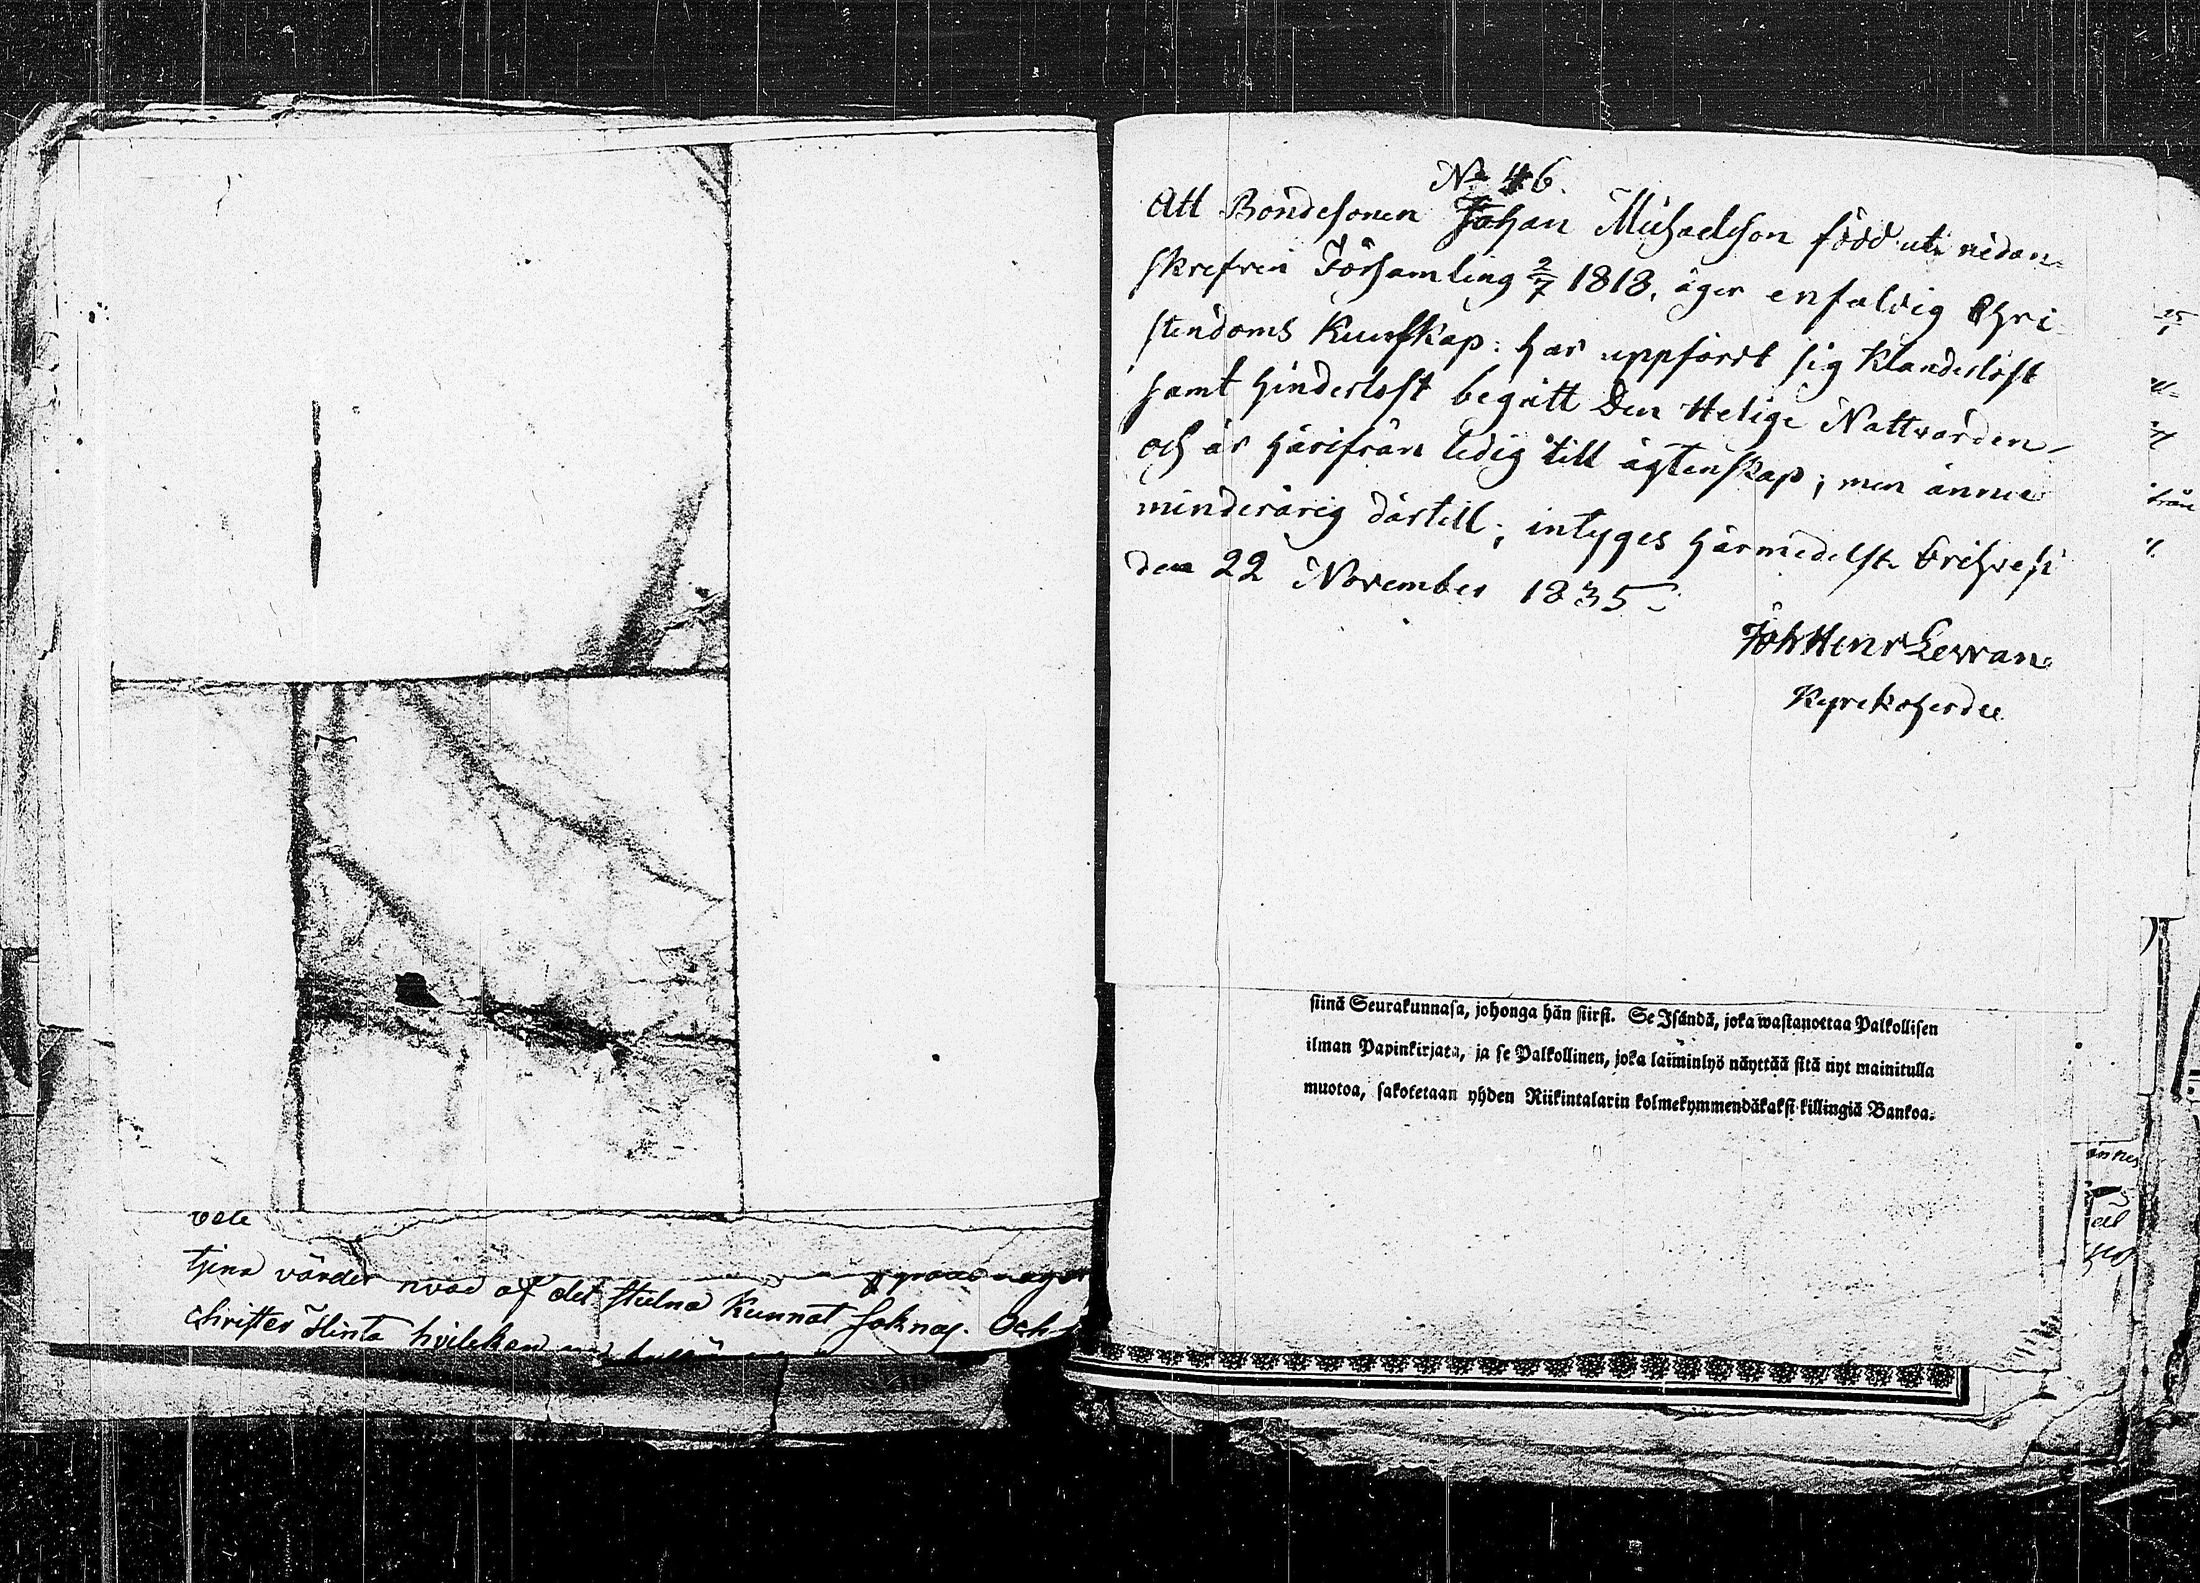 vele
tjena värder hvad af det stulna kunnat saknas. Och
christer Hinta hvilcken
No 46.
Att Bondesonen Johan Michaelsson född uti nedan-
skrefven Församling 2/7 1818, äger enfaldig Chri-
stendoms Kunskap: har uppfördt sig Klanderlöst
samt hinderlöst begått Den Helige Nattvarden
och är härifrån ledig till ägtenskap; men ännu
minderårig därtill; intyges härmedelst
den 22 November 1835
Joh Henr
Kyrkoherde
siinä Seurakunnasa, johonga hän siirsi. Se Isändä, joka wastanottaa Palkollisen
ilman Papinkirjata, ja se Palkollinen, joka laiminlyö näyttää sitä nyt mainitulla
muotoa, sakotetaan yhden Riikintalarin kolmekymmendäkaksi killingiä Bankoa.